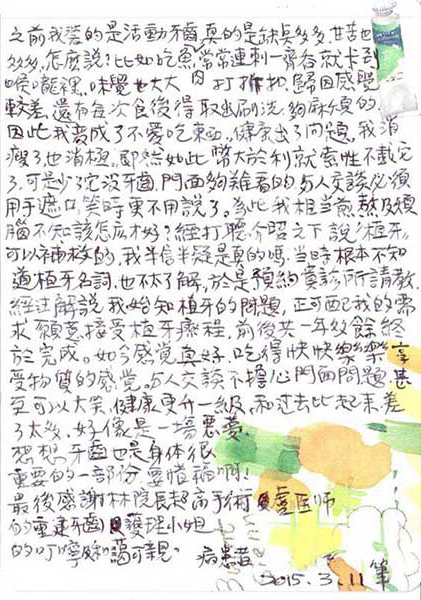 之前我裝的是活動牙齒真的是缺點多多,苦也
多多,怎麼說?比如吃魚常常連刺一齊吞就卡到
喉嚨裡,味覺也大大 打折扣.歸因感覺
較差,還有每次食後得取出刷洗.夠麻煩的.
因此我變成了不愛吃東西.健康出了問題,我消
瘦了也消極,即然如此弊大於利就索性不戴它
了.可是少了它沒牙齒,門面夠難看的与人交談必須
用手遮口.笑時更不用說了。為此我相當煎熬及煩
腦不知該怎麼才好?經打聽介紹之下說"植牙"
可以補救的,我半信半疑是真的嗎.當時根本不知
道植牙名詞.也不太了解,於是預約貴診所請教.
經过解說我始知植牙的問題,正可配我的需
求願意接受植牙療程,前後共一年餘終
於完成。如今感覺真好,吃得快快樂樂享
受物質的感覚。与人交談不擔心門面問題.甚
至可以大笑,健康更升一級,和过去比起來差
了太多.好像是一場惡夢.
想想牙齒也是身体很
重要的一部份.要惜福啊!
最後感謝林院長超高手術 盧医师
的重建牙齒 護理小姐
的叮嚀和藹可親。 病患者
2015.3.11 筆